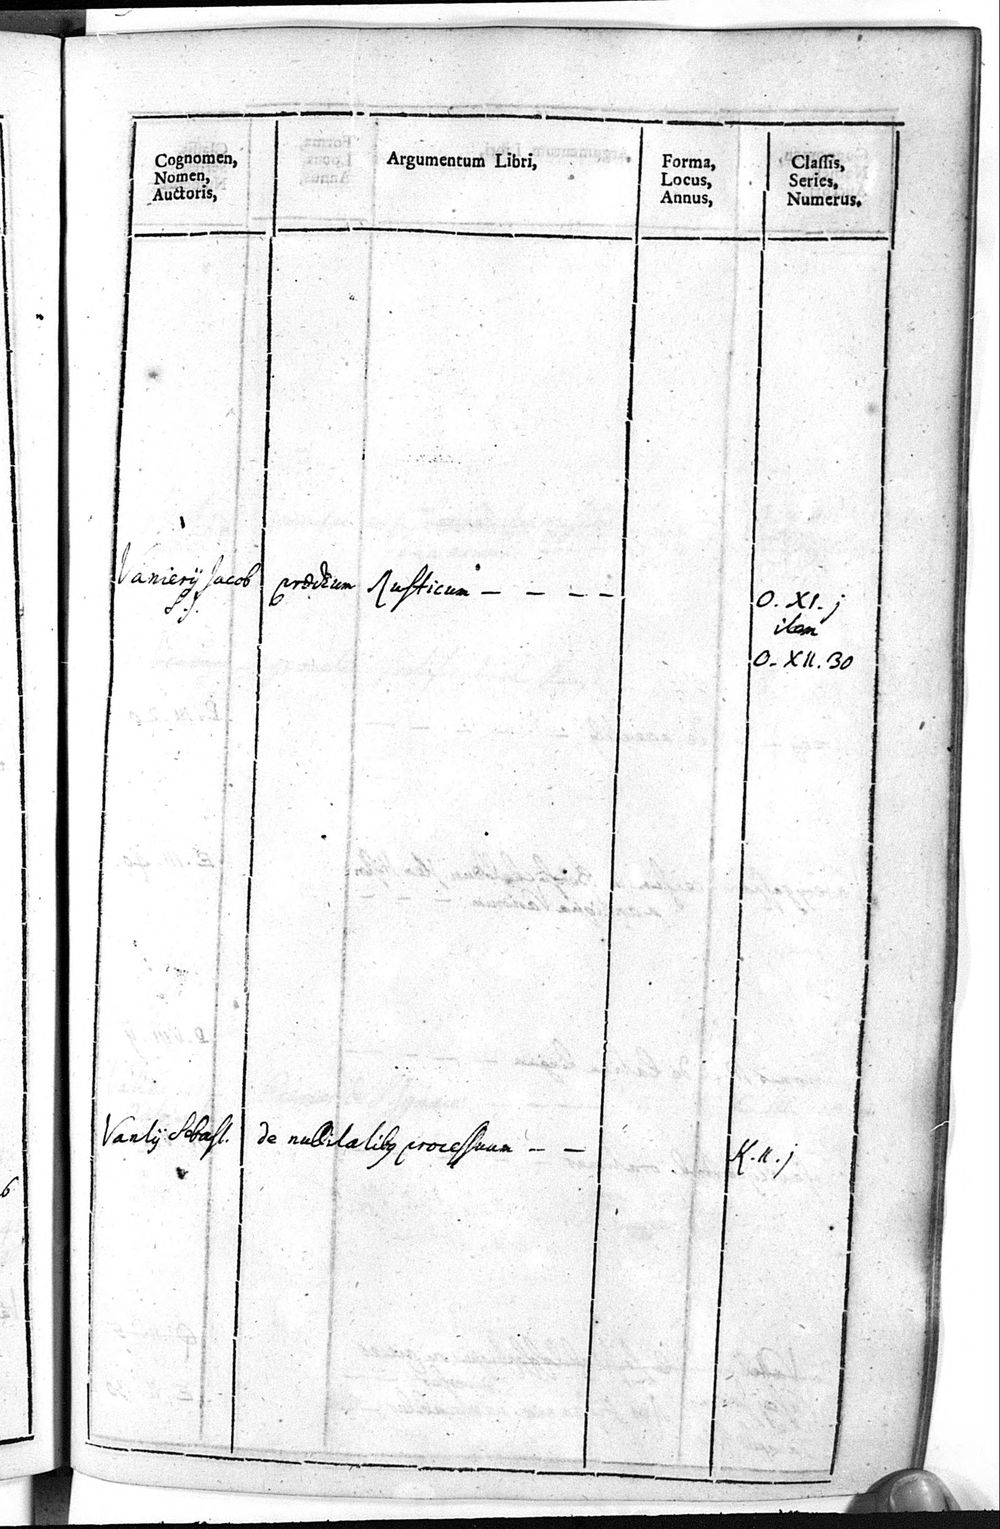 Cognomen,
Nomen,
Auctoris,
Argumentum Libri,
Forma,
Locus,
Annus,
Classis,
Series,
Numerus.
Vanierÿ Jacob
S.J.
prædium Rusticum – – – –
O. XI. j
item
O. XII. 30
Vantÿ Sebast.
de nullitatibq processuum – –
K. II. j
6